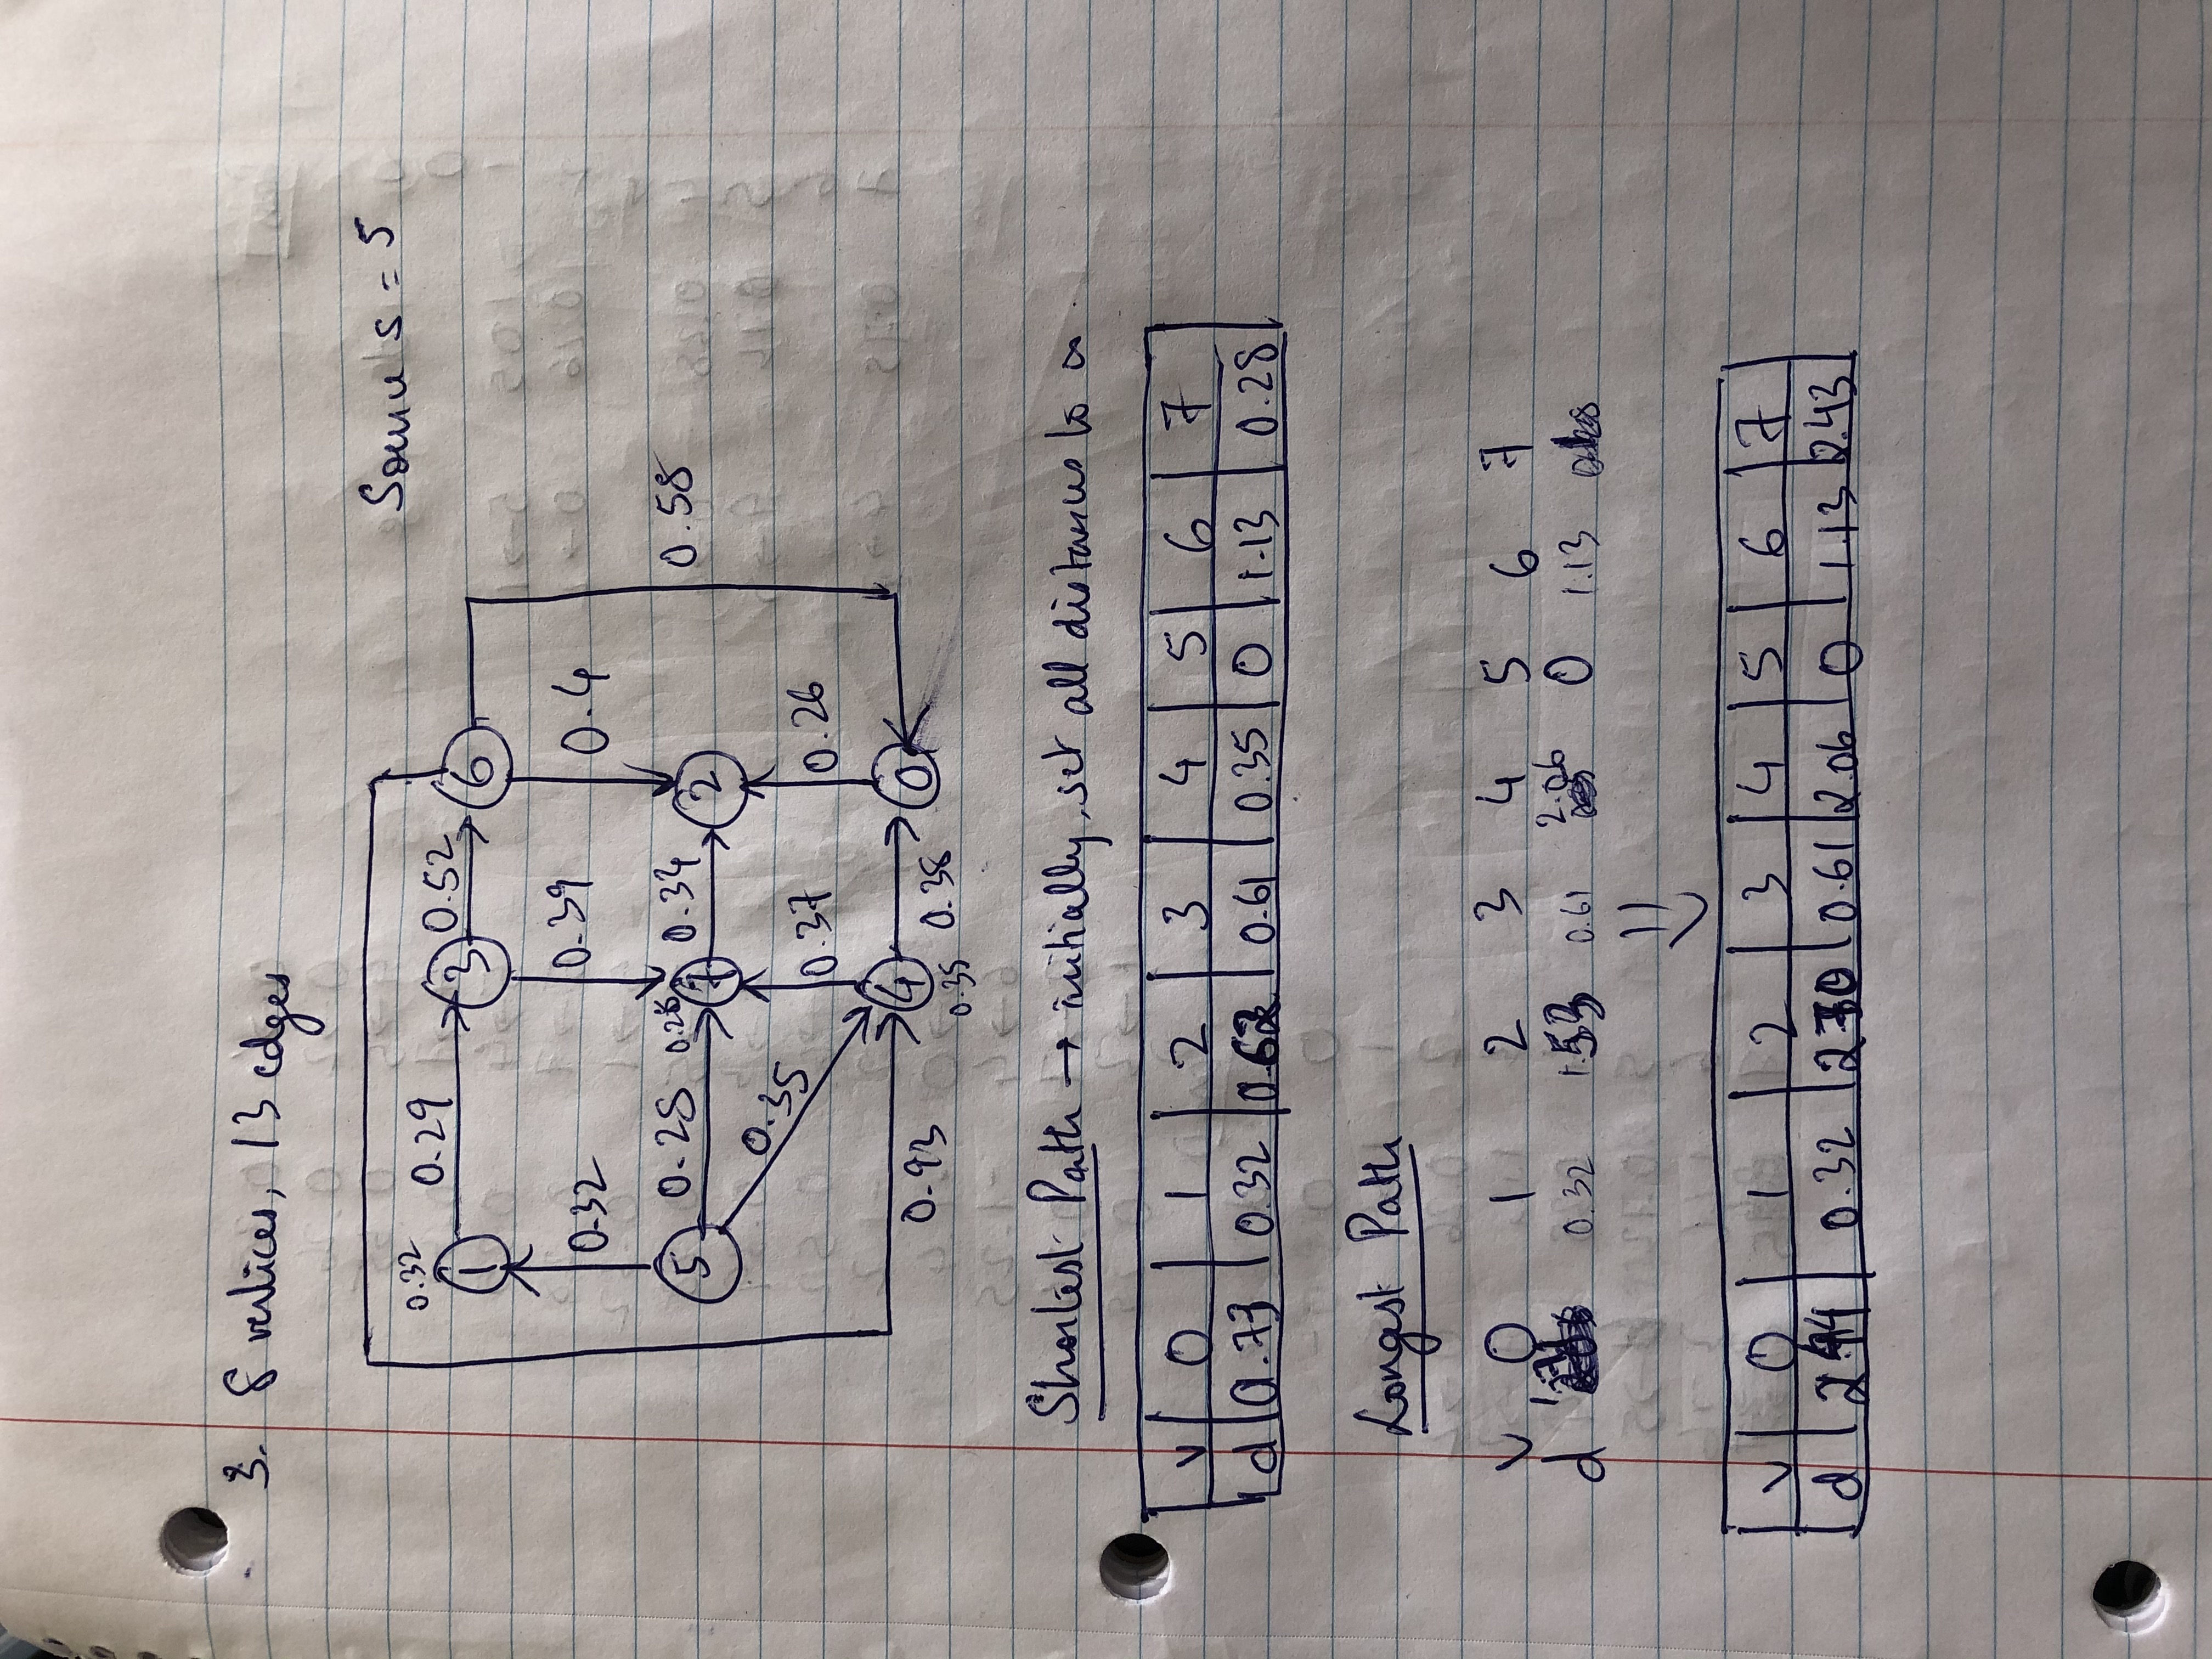 3. 8 vertices, 13 edges
Source s = 5
0.32
0.29
0.52
1
3
6
0.32
0.39
0.4
5
0.28
0.28
7
0.34
2
0.58
0.35
0.37
0.26
0.93
4
0.35
0.38
0
Shortest Path → initially, set all distances to ∞.
v 0 1 2 3 4 5 6 7
d 0.73 0.32 0.62 0.61 0.35 0 1.13 0.28
Longest Path
v 0 1 2 3 4 5 6 7
d 1.71 0.32 0.61 2.06 0 1.13
⇓
v 0 1 2 3 4 5 6 7
d 2.44 0.32 2.70 0.61 2.06 0 1.13 2.43